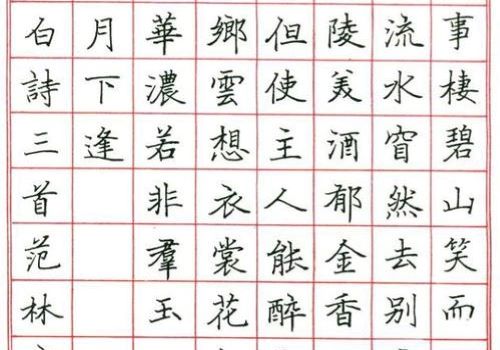 事棲碧山笑而
流水窅然去別
陵美酒郁金香
但使主人能醉
鄉雲想衣裳花
華濃若非羣玉
月下逢
白詩三首范林